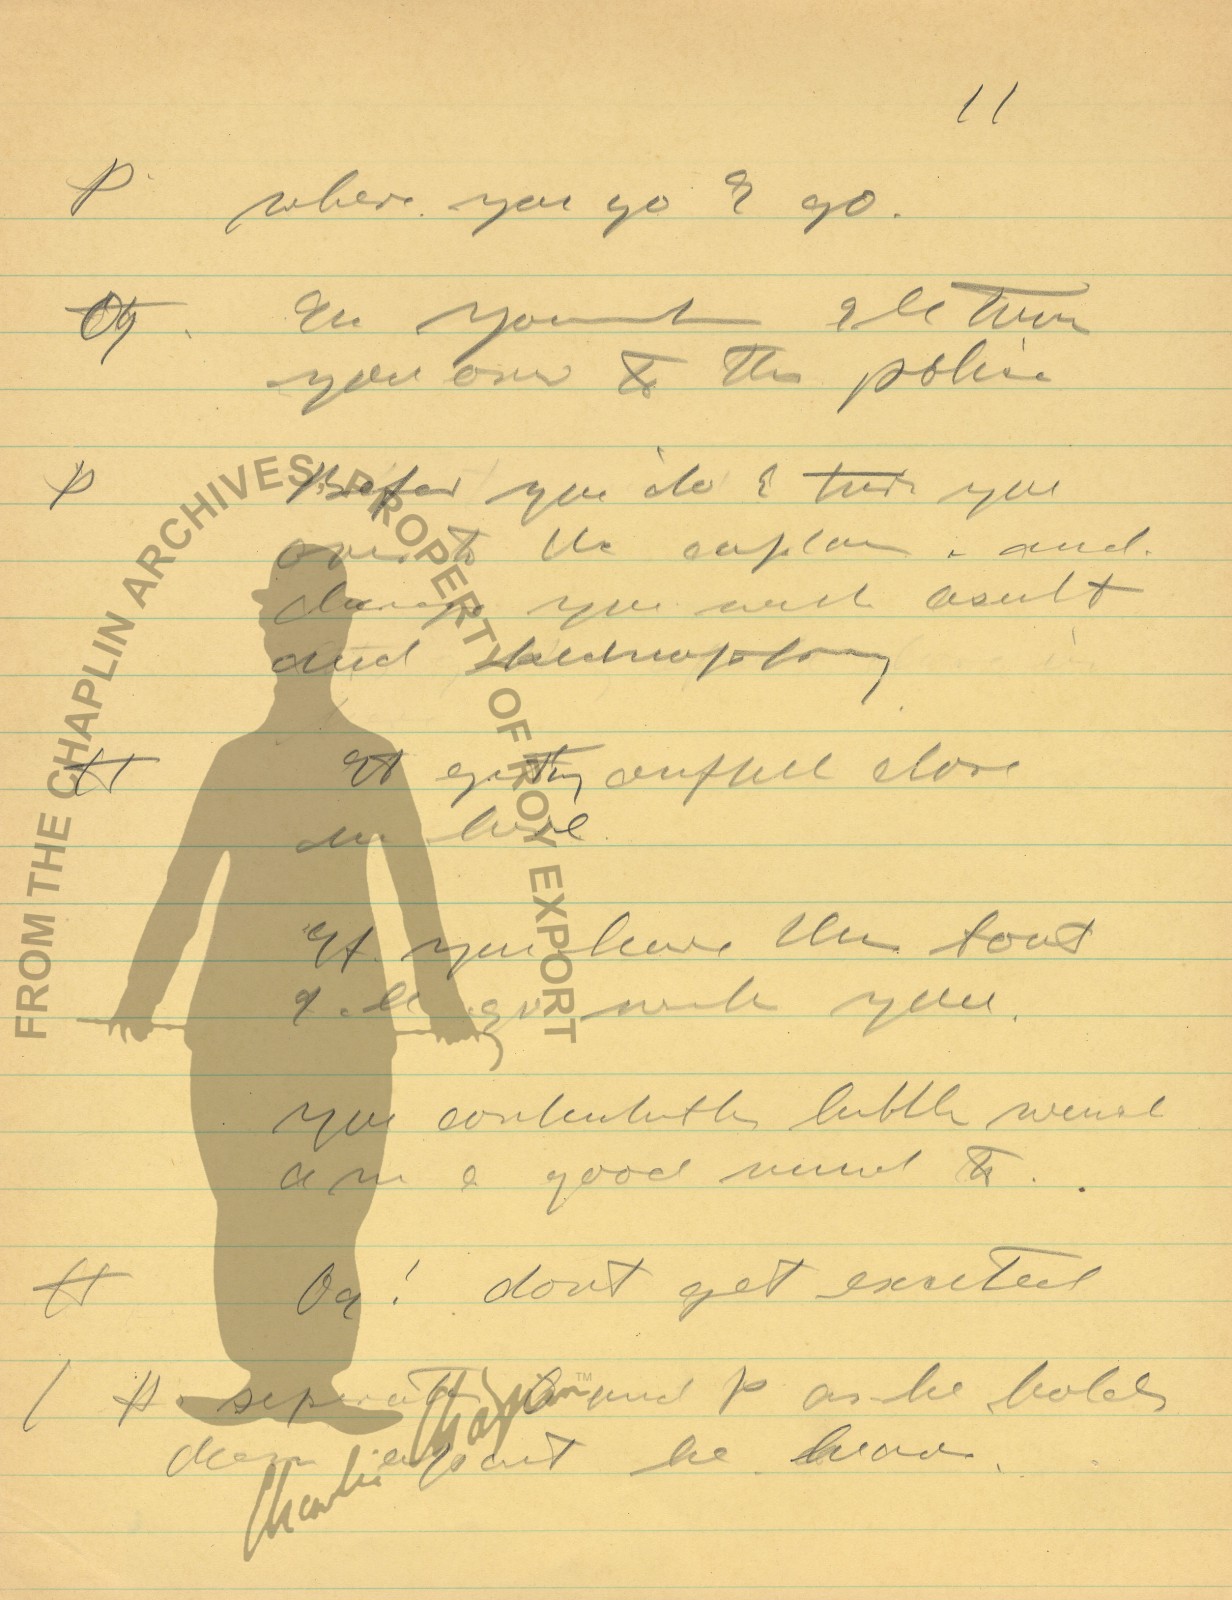 11
P where you go I go.
I'll turn
you over to the police
P Before you do I turn you
over to the captain. and
charge you with asult
and
H It getting awfull close
in here.
If you leave this boat
I'll go with you.
you little
a good mind to.
H Og! dont get excited
H. seperates O and P as he holds
them apart he
FROM THE CHAPLIN ARCHIVES, PROPERTY OF ROY EXPORT
Charlie Chaplin™